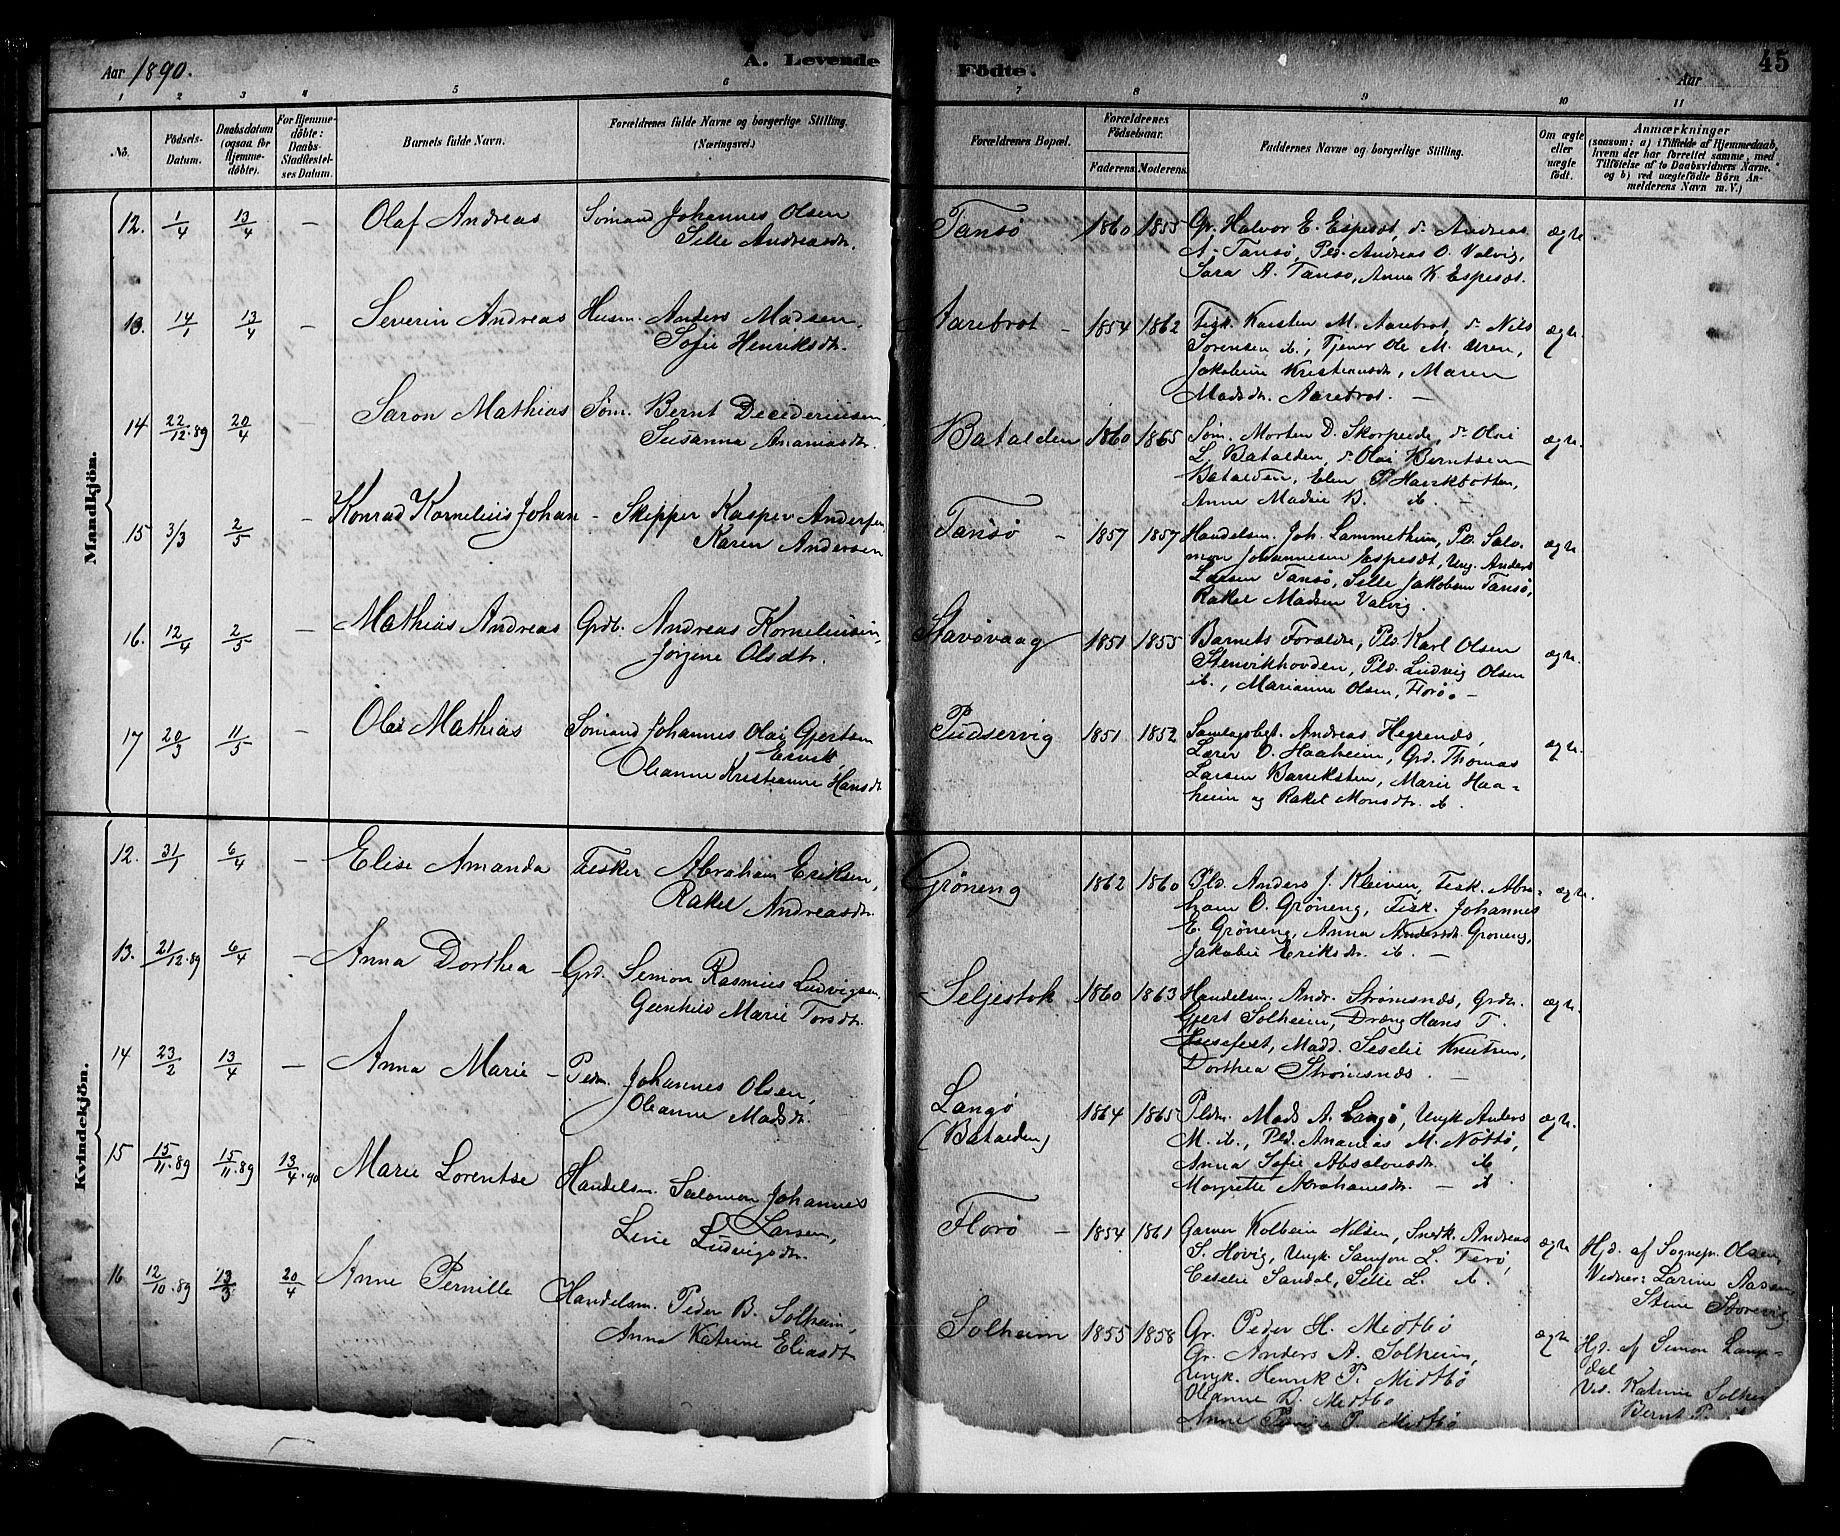 Aar 1890.
A. Levende
Födte.
Aar
45
1 2 3 4 5 6 7 8 9 10 11
No.
Födsels-Datum.
Daabsdatum (ogsaa for Hjemmedöbte).
For Hjemmedöbte: Daabs-Stadfæstelses Datum.
Barnets fulde Navn.
Forældrenes fulde Navne og borgerlige Stilling. (Næringsvei.)
Forældrenes Bopæl.
Forældrenes Födselsaar.
Faderens. Moderens.
Faddernes Navne og borgerlige Stilling.
Om ægte eller uægte födt.
Anmærkninger
(saasom: a) i Tilfælde af Hjemmedaab, hvem der har forrettet samme, med Tilföielse af to Daabsvidners Navne. og b) ved uægtefödte Börn Anmelderens Navn m. V.)
Mandkjön.
12. 1/4 13/4 — Olaf Andreas Sömand Johannes Olsen
Sille Andreasdtr.
Tansö 1860 1855 Gr. Halvor E. Espeset, dº Andreas
A. Tansö, Pld. Andreas O. Valvig,
Sara A. Tansö, Anna K. Espeset.
ægte
13. 14/1 13/4 — Severin Andreas Husm. Anders Madsen,
Sofie Henriksdtr.
Aarebrot — 1854 1862 Fisk. Karsten M. Aarebrot, dº Nils
Sörensen ib., Tjener Ole M. Uren,
Jakobine Kristiansdtr, Maren
Madsdtr. Aarebrot. —
ægte
14 22/12.89 20/4 — Saron Mathias Söm. Bernt Decideriusen,
Susanna Ananiasdtr.
Batalden 1860 1865 Söm. Morten D. Skorpeide, dº Olai
L. Batalden, dº Olai Berntsen
Batalden, Elen P. Havikbotten,
Anne Madsie B. ib. —
ægte
15 3/3 2/5 — Konrad Kornelius Johan - Skipper Kasper Andersen
Karen Andersen
Tansö — 1857 1857 Handelsm. Joh. Lammethun, Pld. Salo-
mon Johannesen Espeset, Ung. Anders
Larsen Tansö, Sille Jakobsen Tansö,
Rakel Madsen Valvig.
ægte
16. 12/4 2/5 — Mathias Andreas Grdb. Andreas Korneliusen,
Jorgine Olsdtr.
Stavövaag 1851 1855 Barnets Forældre, Pld. Karl Olsen
Stenvikhovden, Pld. Ludvig Olsen
ib., Marianne Olsen, Florö. —
ægte
17 20/3 11/5 — Olai Mathias Sömand Johannes Olai Gjertsen
Eisvik,
Oleanne Kristianne Hansdtr
Pudservig 1851 1852 Samlagsbest. Andreas Hegrenæs,
Lærer O. Haaheim, Grd. Thomas
Larsen Barreksten, Marie Haa-
heim og Rakel Monsdtr. ib.
ægte
Kvindekjön.
12. 31/1 6/4 — Elise Amanda Fisker Abraham Eriksen,
Rakel Andreasdtr.
Gröneng 1862 1860 Pld. Anders J. Kleiven, Fisk. Abra-
ham O. Gröneng, Fisk. Johannes
E. Gröneng, Anna Andersdtr. Gröneng,
Jakobie Eriksdtr ib. —
ægte
13. 21/12.89 6/4 — Anna Dorthea - Grd. Semon Rasmus Ludvigsen,
Gunhild Marie Torsdtr.
Seljestok 1860 1863 Handelsm. Andr. Strömsnæs, Grdr.
Gjert Solheim, Dræng Hans T.
Husefest, Madd. Seselie Knutsen,
Dorthea Strömsnæs. —
ægte
14 23/2 13/4 — Anna Marie - Pldm. Johannes Olsen,
Oleanne Madsdtr.
Langö (Batalden) 1864 1865 Pldm. Mads A. Langö, Ungk. Anders
M. ib., Pld. Ananias M. Nöttö,
Anna Sofie Absalonsdtr. ib
Margrette Abrahamsdtr. — ib
ægte
15 15/11.89 15/11.89 13/4.90 Marie Lorentse Handelsm. Salomon Johannes
Larsen,
Line Ludvigsdtr.
Florö — 1854 1861 Garver Kolbein Nilsen, Snedk. Andreas
S. Hovig, Ungk. Samson L. Florö,
Ceselie Sandal, Sille L. ib.
ægte
Hjd. af Sognepr. Olsen,
Vidner: Larine Aasen,
Stine Storevig
16 12/10.89 13/3 20/4 Anne Pernille Handelsm. Peder B. Solheim,
Anna Katrine Eliasdtr
Solheim 1855 1858 Gr. Peder H. Midtbö
Gr. Anders A. Solheim,
Ungk. Henrik P. Midtbö
Oleanne D. Midtbö
Anne P. Midtbö
ægte
Hjd. af Simon Lang-
dal
Vid. Katrine Solheim
Bernt P.